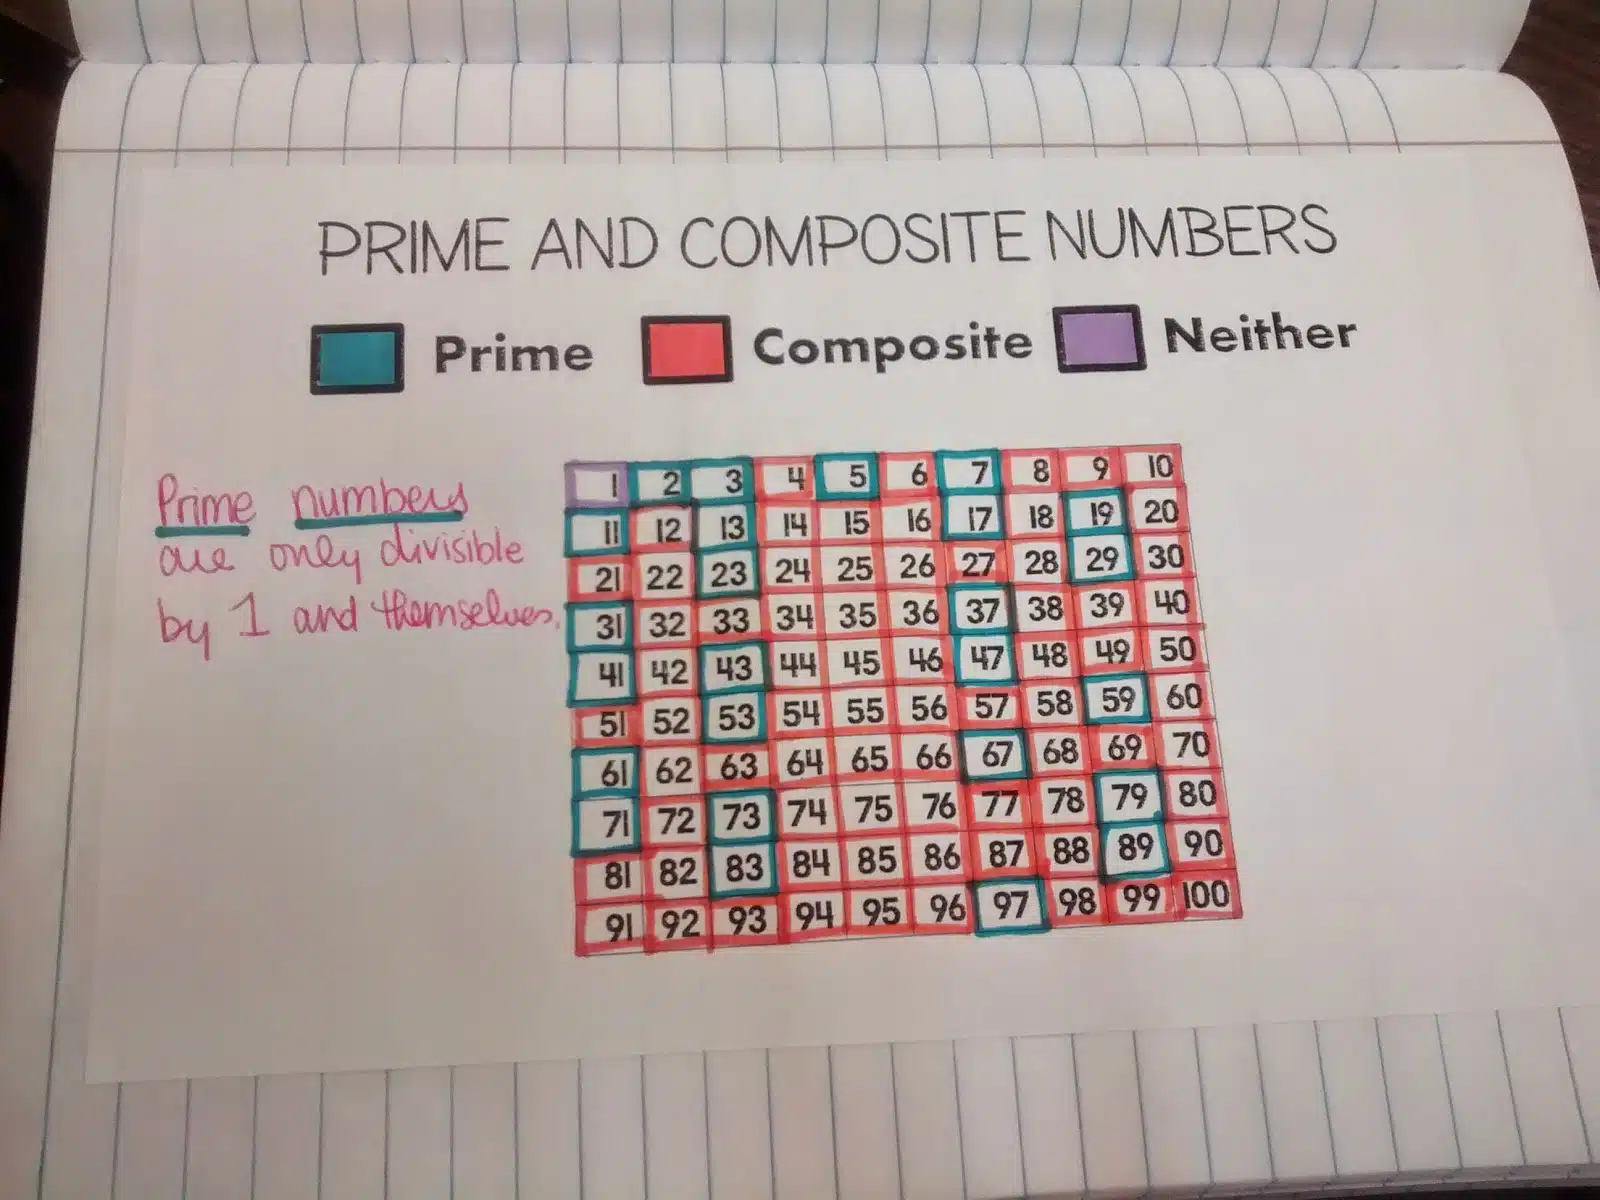 PRIME AND COMPOSITE NUMBERS
Prime Composite Neither
Prime numbers
are only divisible
by 1 and themselves.
1 2 3 4 5 6 7 8 9 10
11 12 13 14 15 16 17 18 19 20
21 22 23 24 25 26 27 28 29 30
31 32 33 34 35 36 37 38 39 40
41 42 43 44 45 46 47 48 49 50
51 52 53 54 55 56 57 58 59 60
61 62 63 64 65 66 67 68 69 70
71 72 73 74 75 76 77 78 79 80
81 82 83 84 85 86 87 88 89 90
91 92 93 94 95 96 97 98 99 100